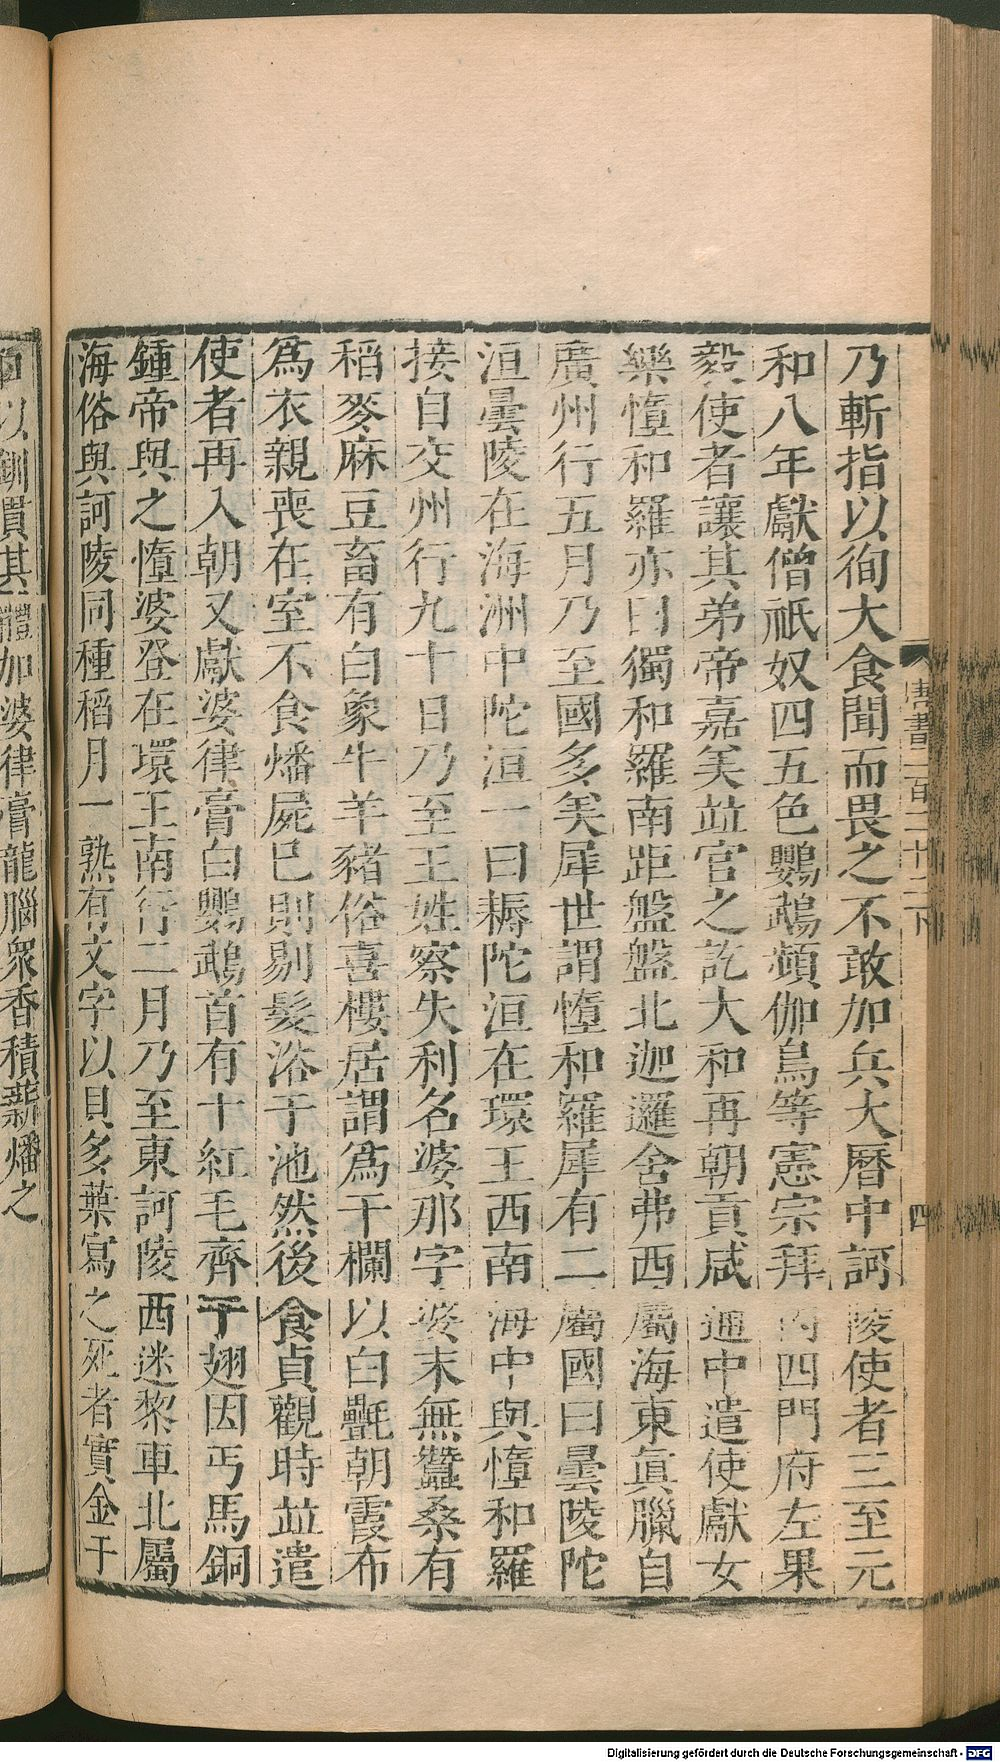 乃斬指以徇大食聞而畏之不敢加兵大曆中訶陵使者三至元
和八年獻僧祇奴四五色鸚鵡頻伽鳥等憲宗拜內四門府左果
毅使者讓其弟帝嘉美並官之訖大和再朝貢咸通中遣使獻女
樂墮和羅亦曰獨和羅南距盤盤北迦邏舍弗西屬海東真臘自
廣州行五月乃至國多美犀世謂墮和羅犀有二屬國曰曇陵陀
洹曇陵在海洲中陀洹一曰耨陀洹在環王西南海中與墮和羅
接自交州行九十日乃至王姓察失利名婆那字婆末無蠶桑有
稻麥麻豆畜有白象牛羊豬俗喜樓居謂為干欄以白氎朝霞布
為衣親喪在室不食燔屍已則剔髮浴于池然後食貞觀時並遣
使者再入朝又獻婆律膏白鸚鵡首有十紅毛齊于翅因丐馬銅
鍾帝與之墮婆登在環王南行二月乃至東訶陵西迷黎車北屬
海俗與訶陵同種稻月一熟有文字以貝多葉寫之死者實金于
口以釧貫其體加婆律膏龍腦眾香積薪燔之
唐書二百二十二下
四
Digitalisierung gefördert durch die Deutsche Forschungsgemeinschaft - DFG